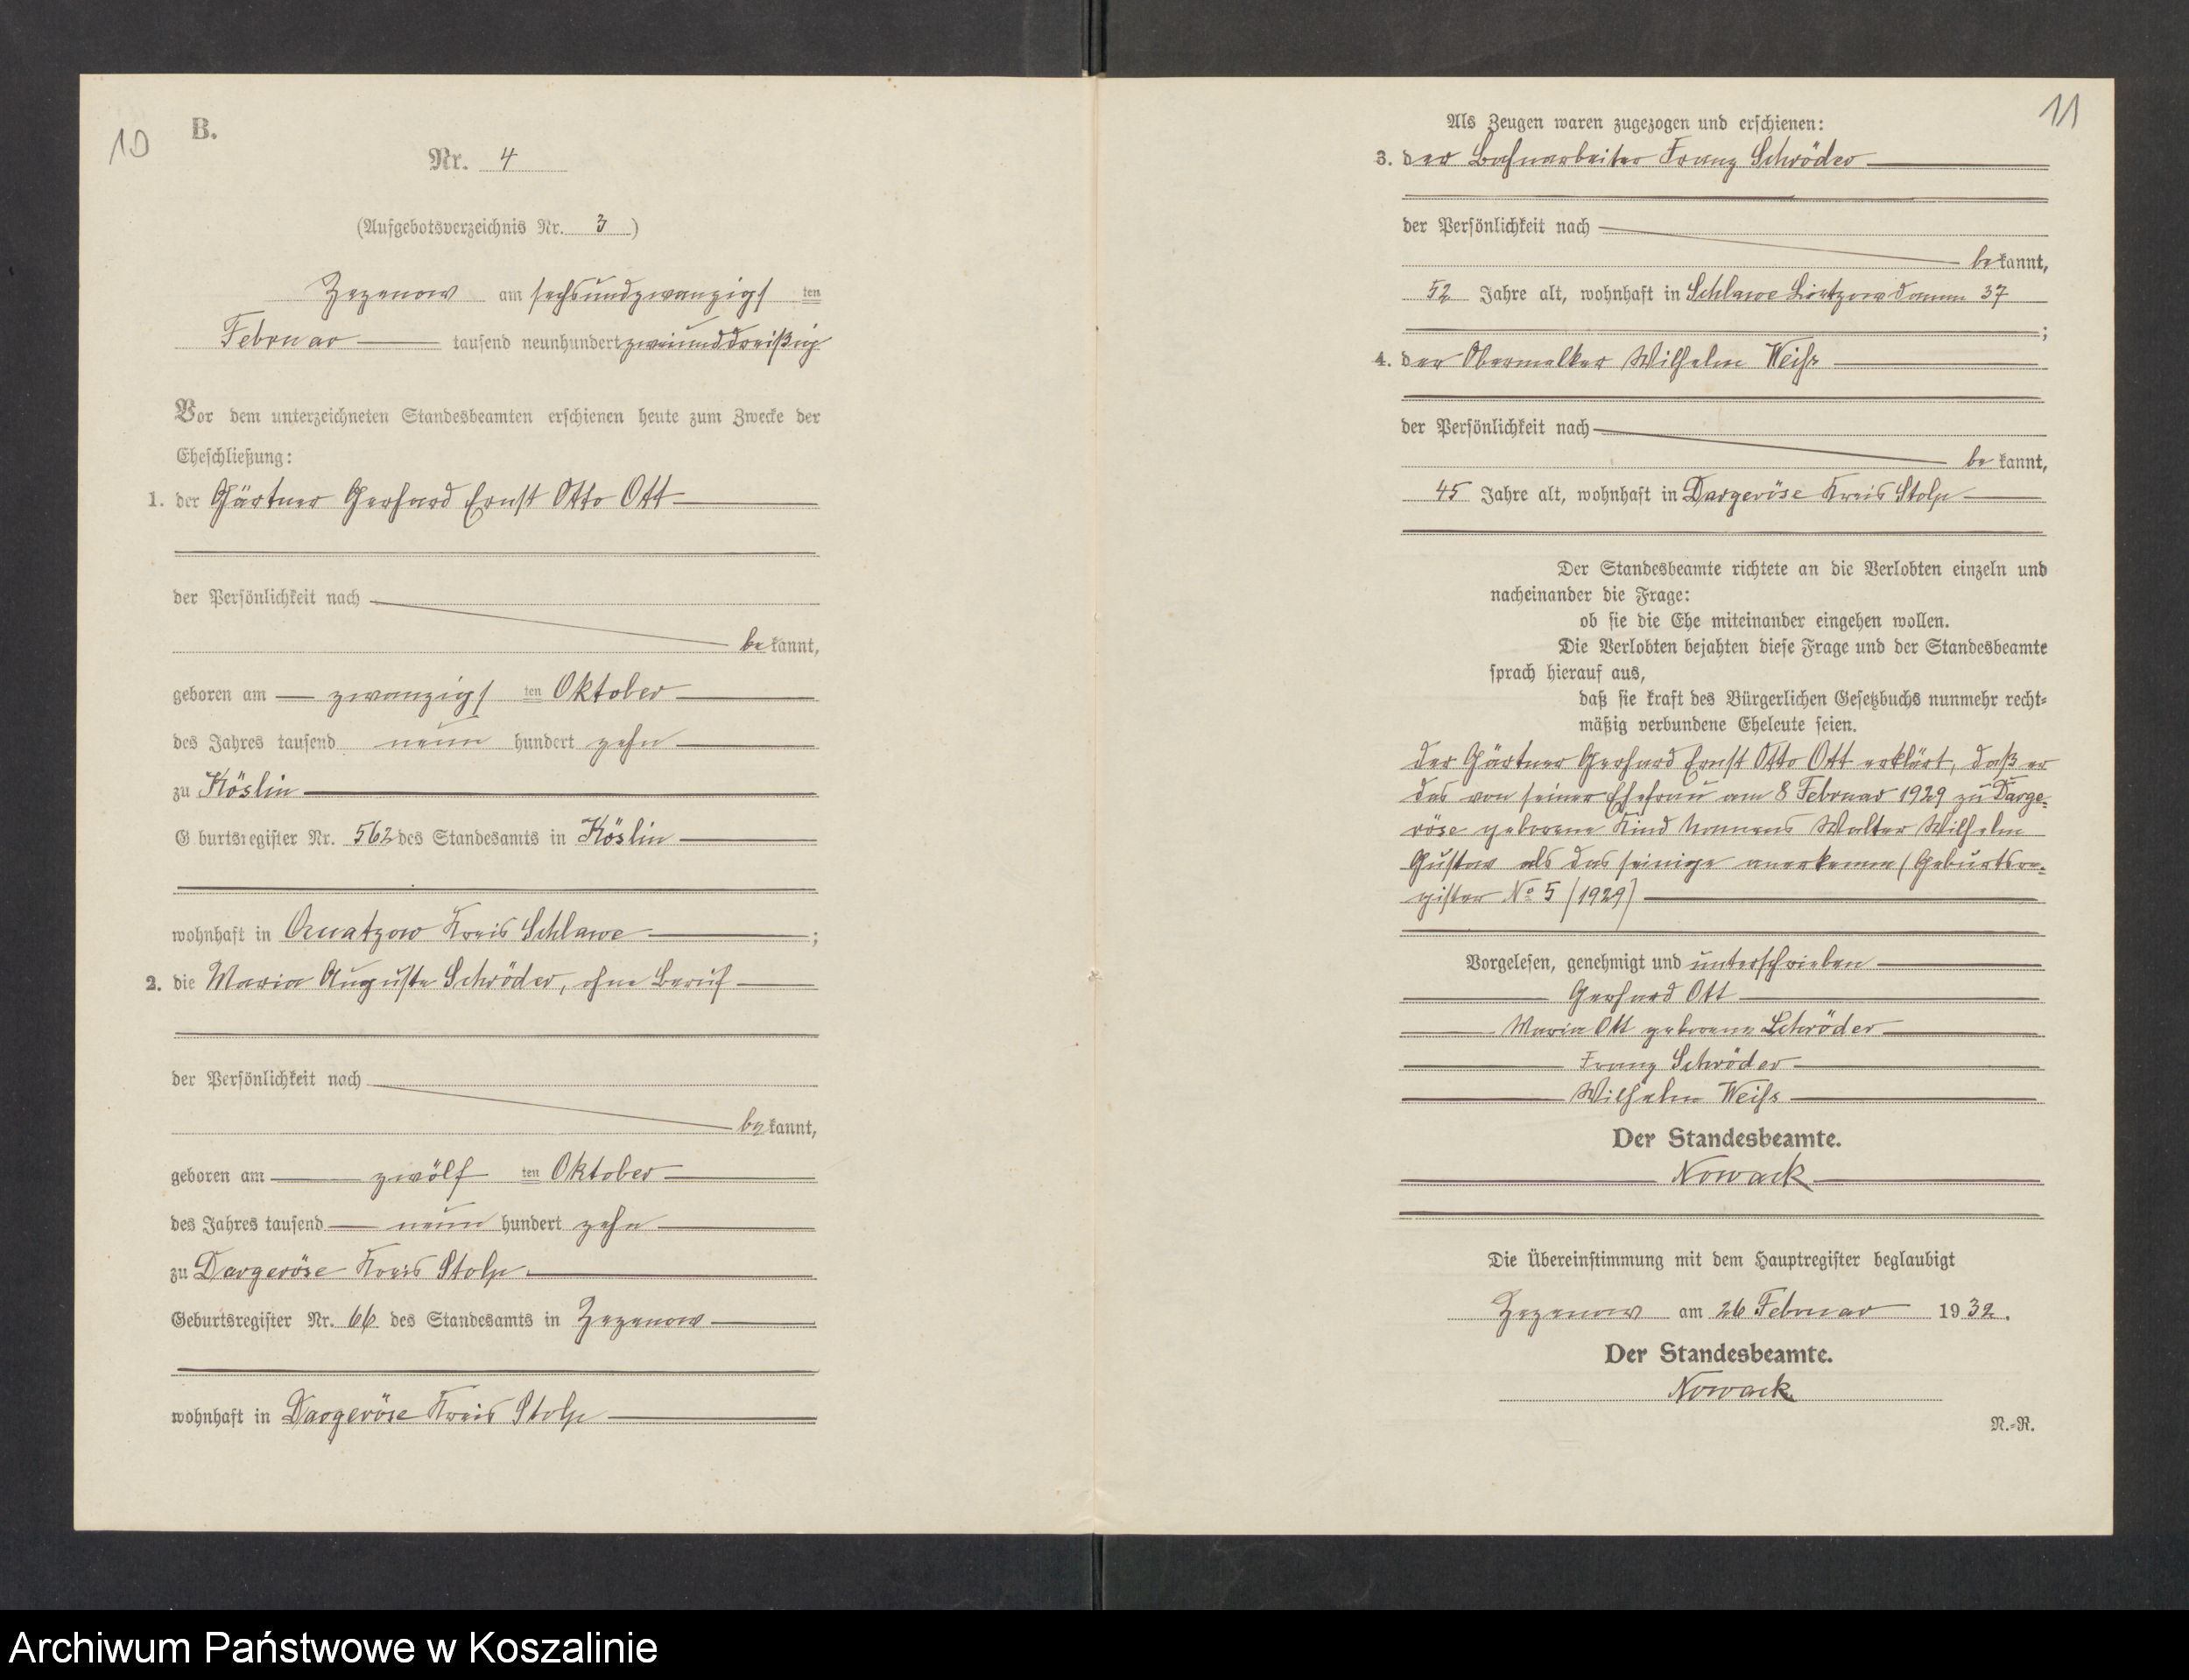 10
B.
Nr. 4
(Aufgebotsverzeichnis Nr. 3)
Zezenow am sechsundzwanzigsten
Februar tausend neunhundert zweiunddreißig
Vor dem unterzeichneten Standesbeamten erschienen heute zum Zwecke der
Eheschließung:
1. der Gärtner Gerhard Ernst Otto Ott
der Persönlichkeit nach
bekannt,
geboren am zwanzigsten Oktober
des Jahres tausend neun hundert zehn
zu Köslin
G burtsregister Nr. 562 des Standesamts in Köslin
wohnhaft in Kreis Schlawe;
2. die Maria Auguste Schröder, ohne Beruf
der Persönlichkeit nach
bekannt,
geboren am zwölften Oktober
des Jahres tausend neun hundert zehn
zu Dargeröse Kreis Stolp
Geburtsregister Nr. 66 des Standesamts in Zezenow
wohnhaft in Dargeröse Kreis Stolp
11
Als Zeugen waren zugezogen und erschienen:
3. der Bahnarbeiter Franz Schröder
der Persönlichkeit nach
bekannt,
52 Jahre alt, wohnhaft in Schlawe 37
;
4. der Obermelker Wilhelm Weiß
der Persönlichkeit nach
bekannt,
45 Jahre alt, wohnhaft in Dargeröse Kreis Stolp
Der Standesbeamte richtete an die Verlobten einzeln und
nacheinander die Frage:
ob sie die Ehe miteinander eingehen wollen.
Die Verlobten bejahten diese Frage und der Standesbeamte
sprach hierauf aus,
daß sie kraft des Bürgerlichen Gesetzbuchs nunmehr recht-
mäßig verbundene Eheleute seien.
der Gärtner Gerhard Ernst Otto Ott erklärt, daß er
das von seiner Ehefrau am 8 Februar 1929 zu Darge-
röse geborene Kind namens Walter Wilhelm
Gustav als das seinige anerkenne (Geburtsre-
gister No 5/1929)
Vorgelesen, genehmigt und unterschrieben
Gerhard Ott
Maria Ott geborene Schröder
Franz Schröder
Wilhelm Weiß
Der Standesbeamte.
Nowack
Die Übereinstimmung mit dem Hauptregister beglaubigt
Zezenow am 26 Februar 1932.
Der Standesbeamte.
Nowack
N.-R.
Archiwum Państwowe w Koszalinie